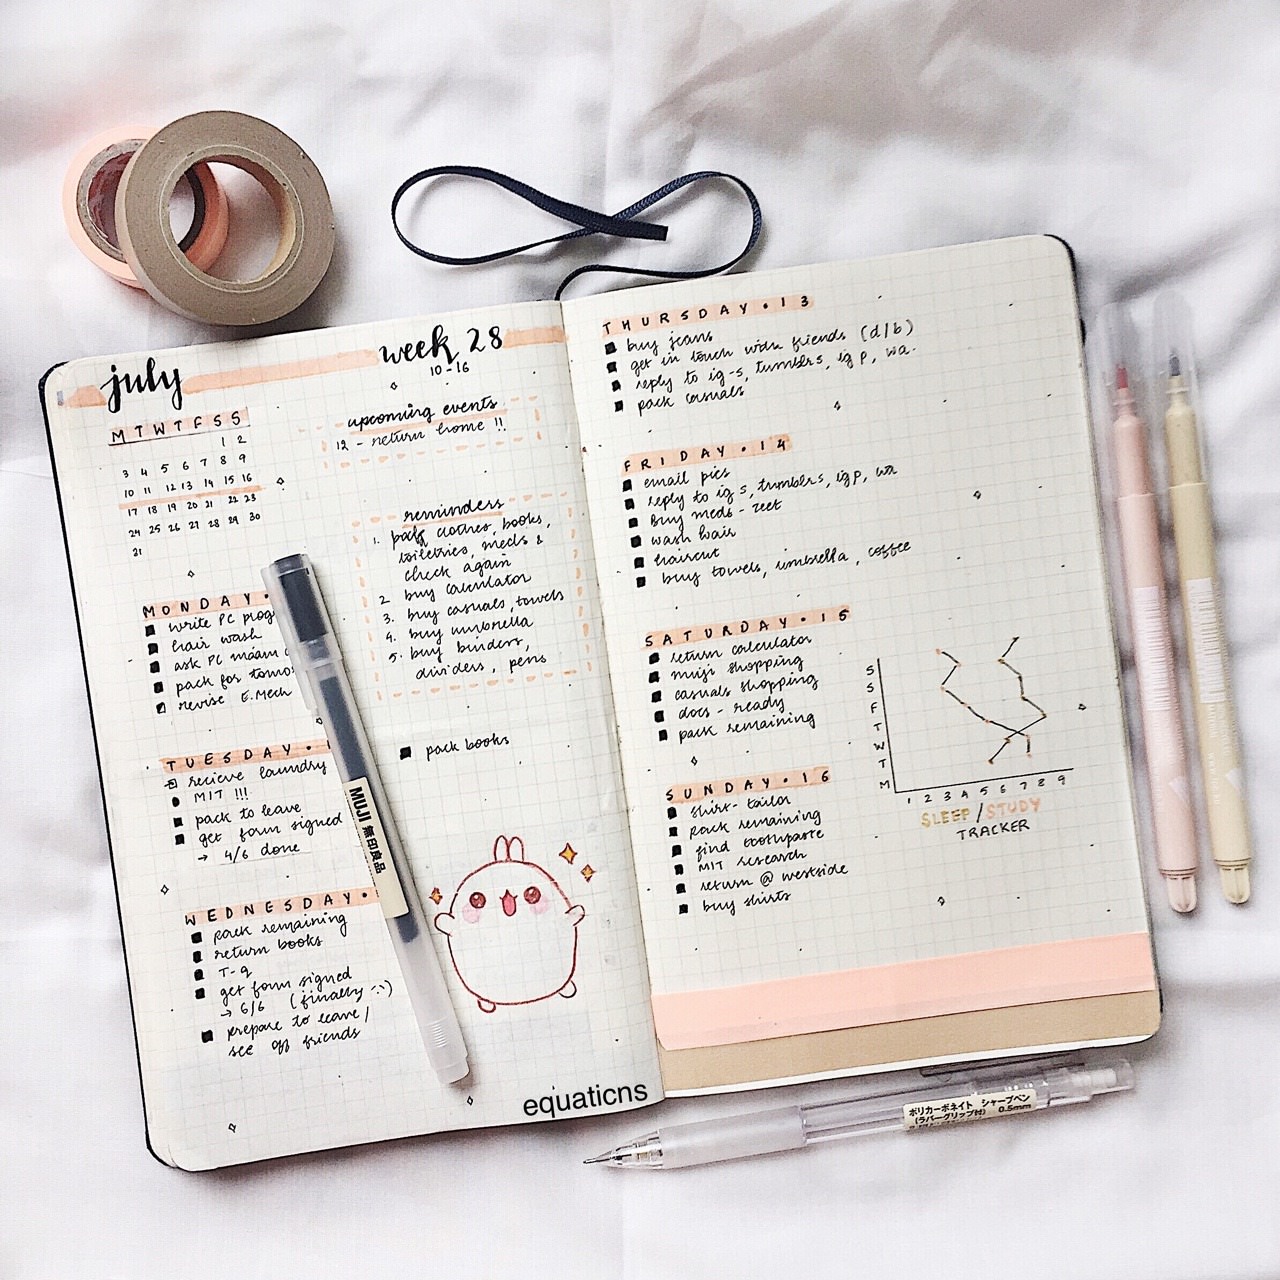 july
week 28
10-16
M T W T F S S
1 2
3 4 5 6 7 8 9
10 11 12 13 14 15 16
17 18 19 20 21 22 23
24 25 26 27 28 29 30
31
upcoming events
12 - return home !!
reminders
1. pack clothes, books,
toiletries, meds &
check again
2. buy calculator
3. buy casuals, towels
4. buy umbrella
5. buy binders,
dividers, pens
pack books
MONDAY.
write PC prog
hair wash
ask PC máam
pack for tomo
revise E.Mech
TUESDAY. 1
recieve laundry
MIT !!!
pack to leave
get form signed
→ 4/6 done
WEDNESDAY.
pack remaining
return books
T-9
get form signed
→ 6/6 (finally :))
prepare to leave /
see off friends
MUJI 無印良品
equaticns
THURSDAY.13
buy jeans
get in touch with friends (d/b)
reply to ig-s, tumblrs, ig p, wa.
pack casuals
FRIDAY.14
email pics
reply to ig s, tumblrs, ig p, wa
buy meds - zeet
wash hair
haircut
buy towels, umbrella, coffee
SATURDAY.15
return calculator
muji shopping
casuals shopping
docs - ready
pack remaining
SUNDAY.16
shirt - tailor
pack remaining
find toothpaste
MIT research
return @ westside
buy shirts
S
S
F
T
W
T
M
1 2 3 4 5 6 7 8 9
SLEEP / STUDY
TRACKER
ポリカーボネイト シャープペン
(ラバーグリップ付) 0.5mm